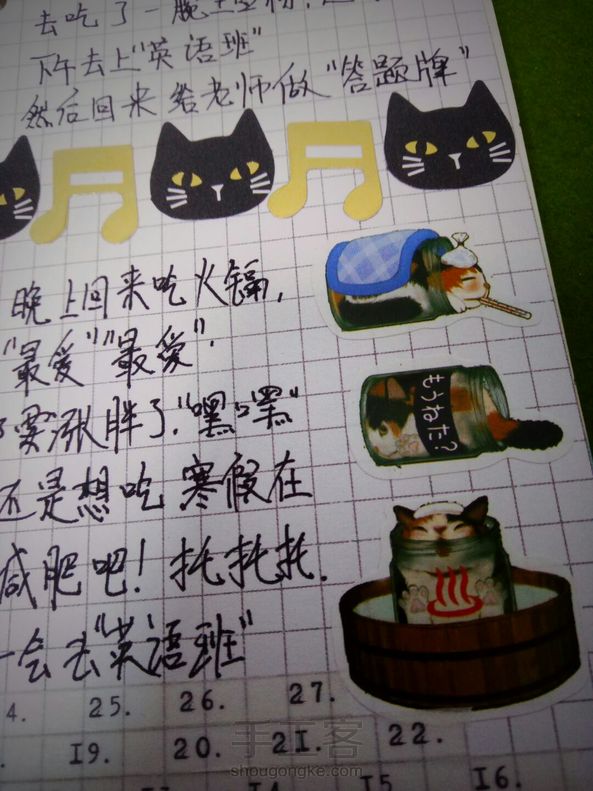 去吃了一腕
下午去上"英语班"
然后回来给老师做"答题牌"
晚上回来吃火锅,
"最爱""最爱".
要涨胖了."嘿""嘿"
还是想吃 寒假在
减肥吧! 托托托.
一会去"英语班"
もうねた?
4. 25. 26. 27.
19. 20. 21. 22.
14 15 16.
手工客
shougongke.com